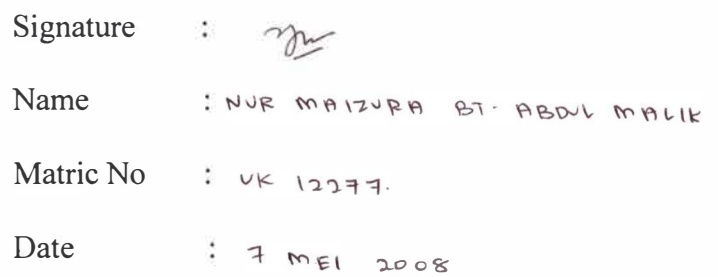 Signature :
Name : NUR MAIZURA BT. ABDUL MALIK
Matric No : UK 12277.
Date : 7 MEI 2008